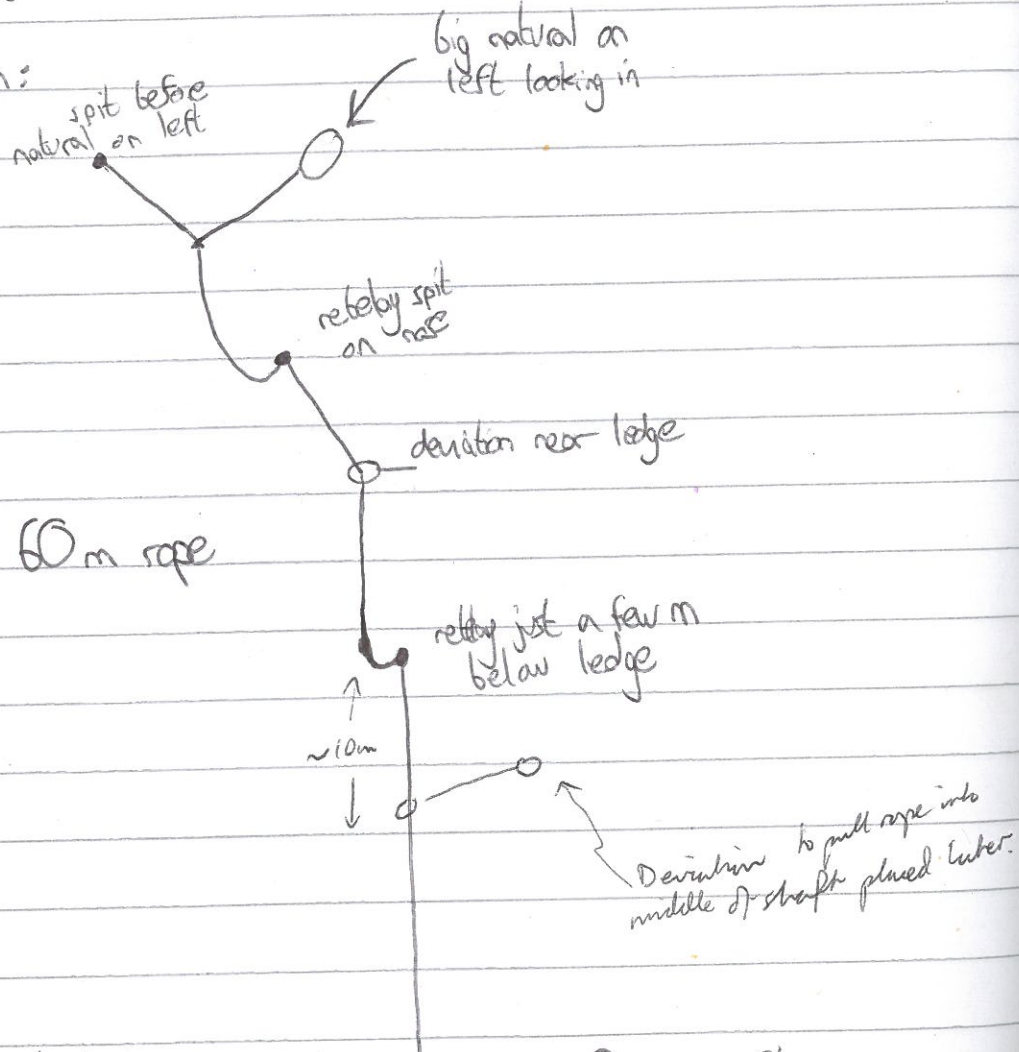 big natural on
left looking in
n:
spit before
natural on left
rebelay spit
on nose
deviation near ledge
60m rope
rebelay just a few m
below ledge
~10m
Deviation to pull rope into
middle of shaft placed later.